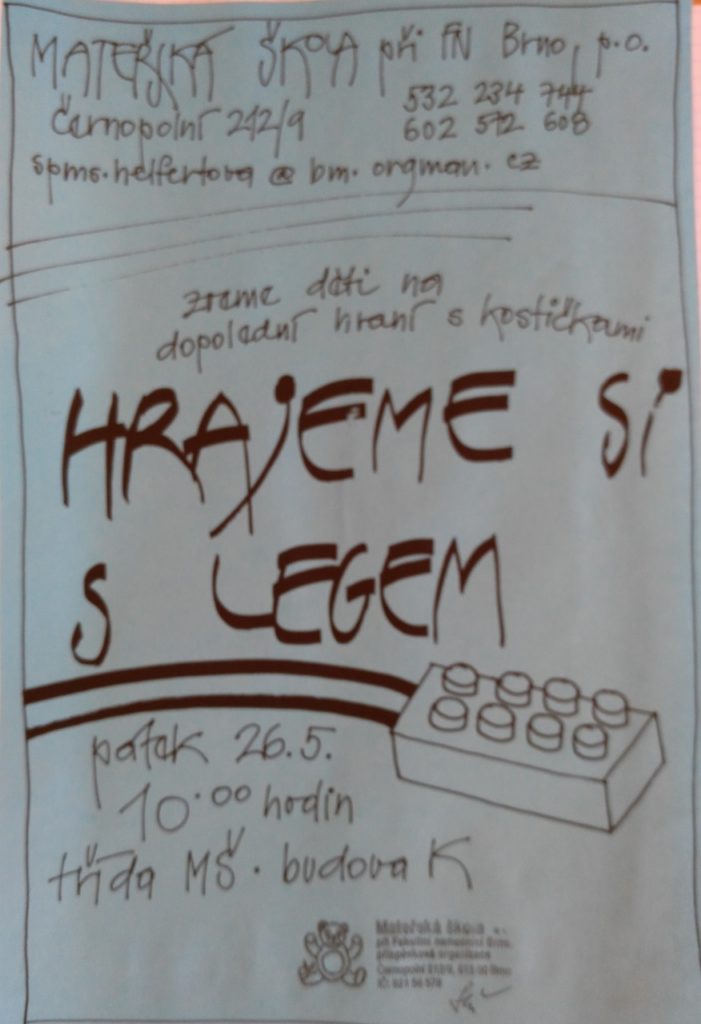 MATEŘSKÁ ŠKOLA při FN Brno, p.o.
Černopolní 212/9
532 234 744
602 572 608
spms.helfertova @ bm. orgman. cz
zveme děti na
dopolední hraní s kostičkami
HRAJEME Si
S LEGEM
pátek 26.5.
10.00 hodin
třída MŠ. budova K
Mateřská škola
při Fakultní nemocnici Brno,
příspěvková organizace
Černopolní 212/9, 613 00 Brno
IČ: